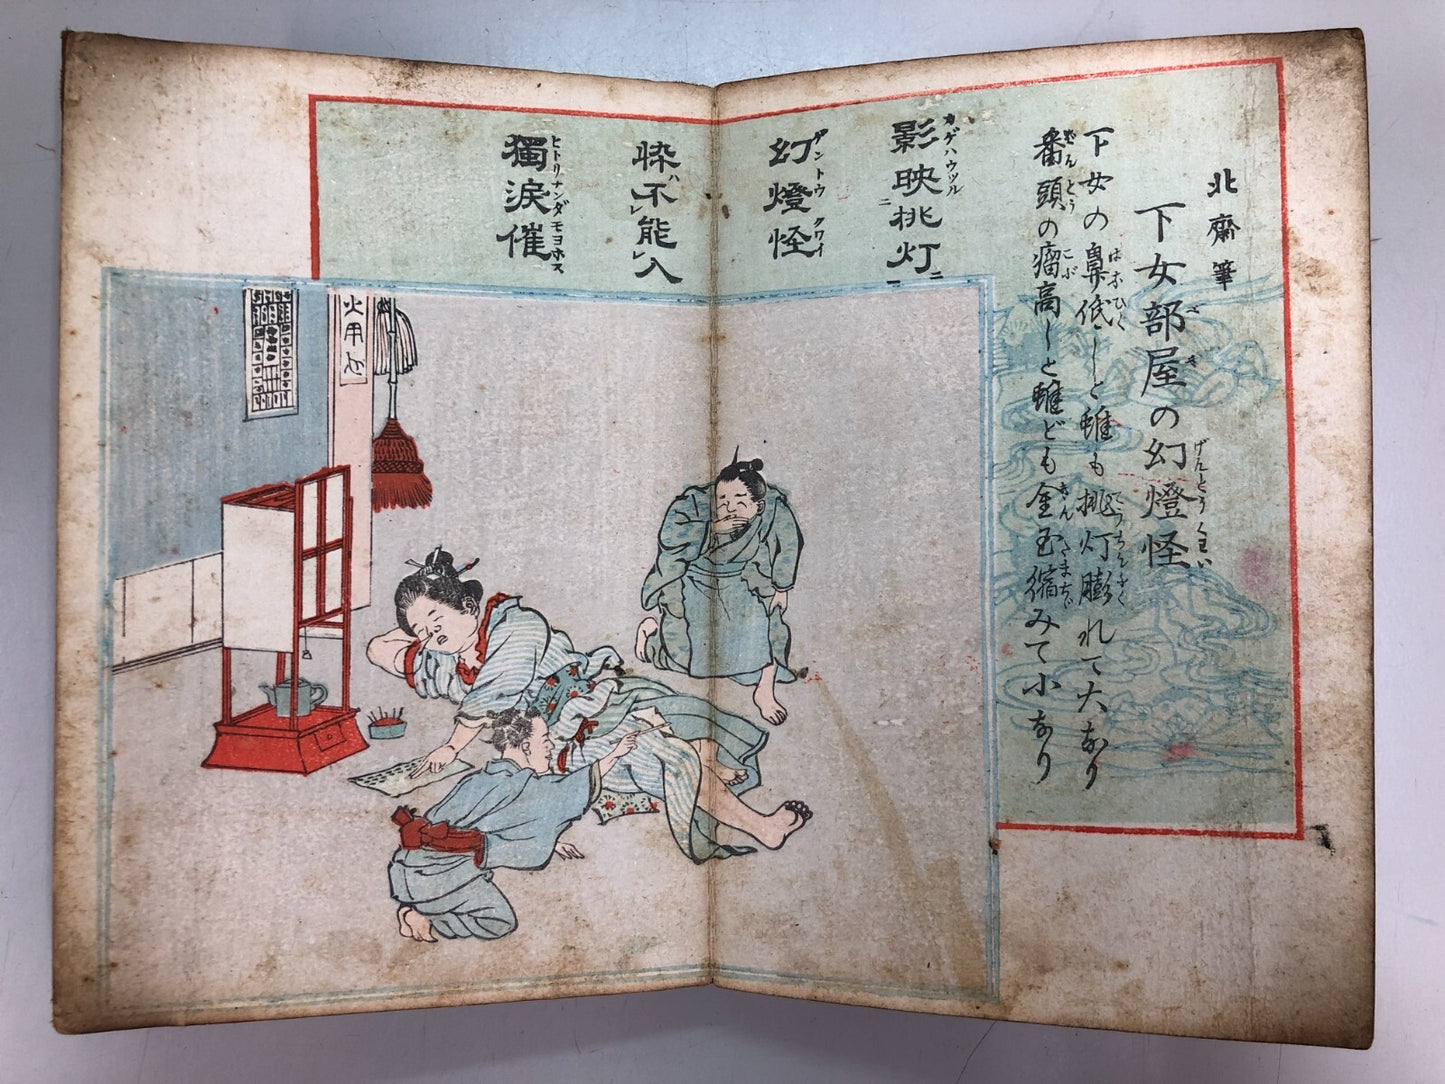 北齋筆
下女部屋の幻燈怪
下女の鼻低しと雖も挑灯膨れて大なり
番頭の瘤高しと雖ども金玉縮みて小なり
影映挑灯
幻燈怪
不能入
獨淚催
火用心